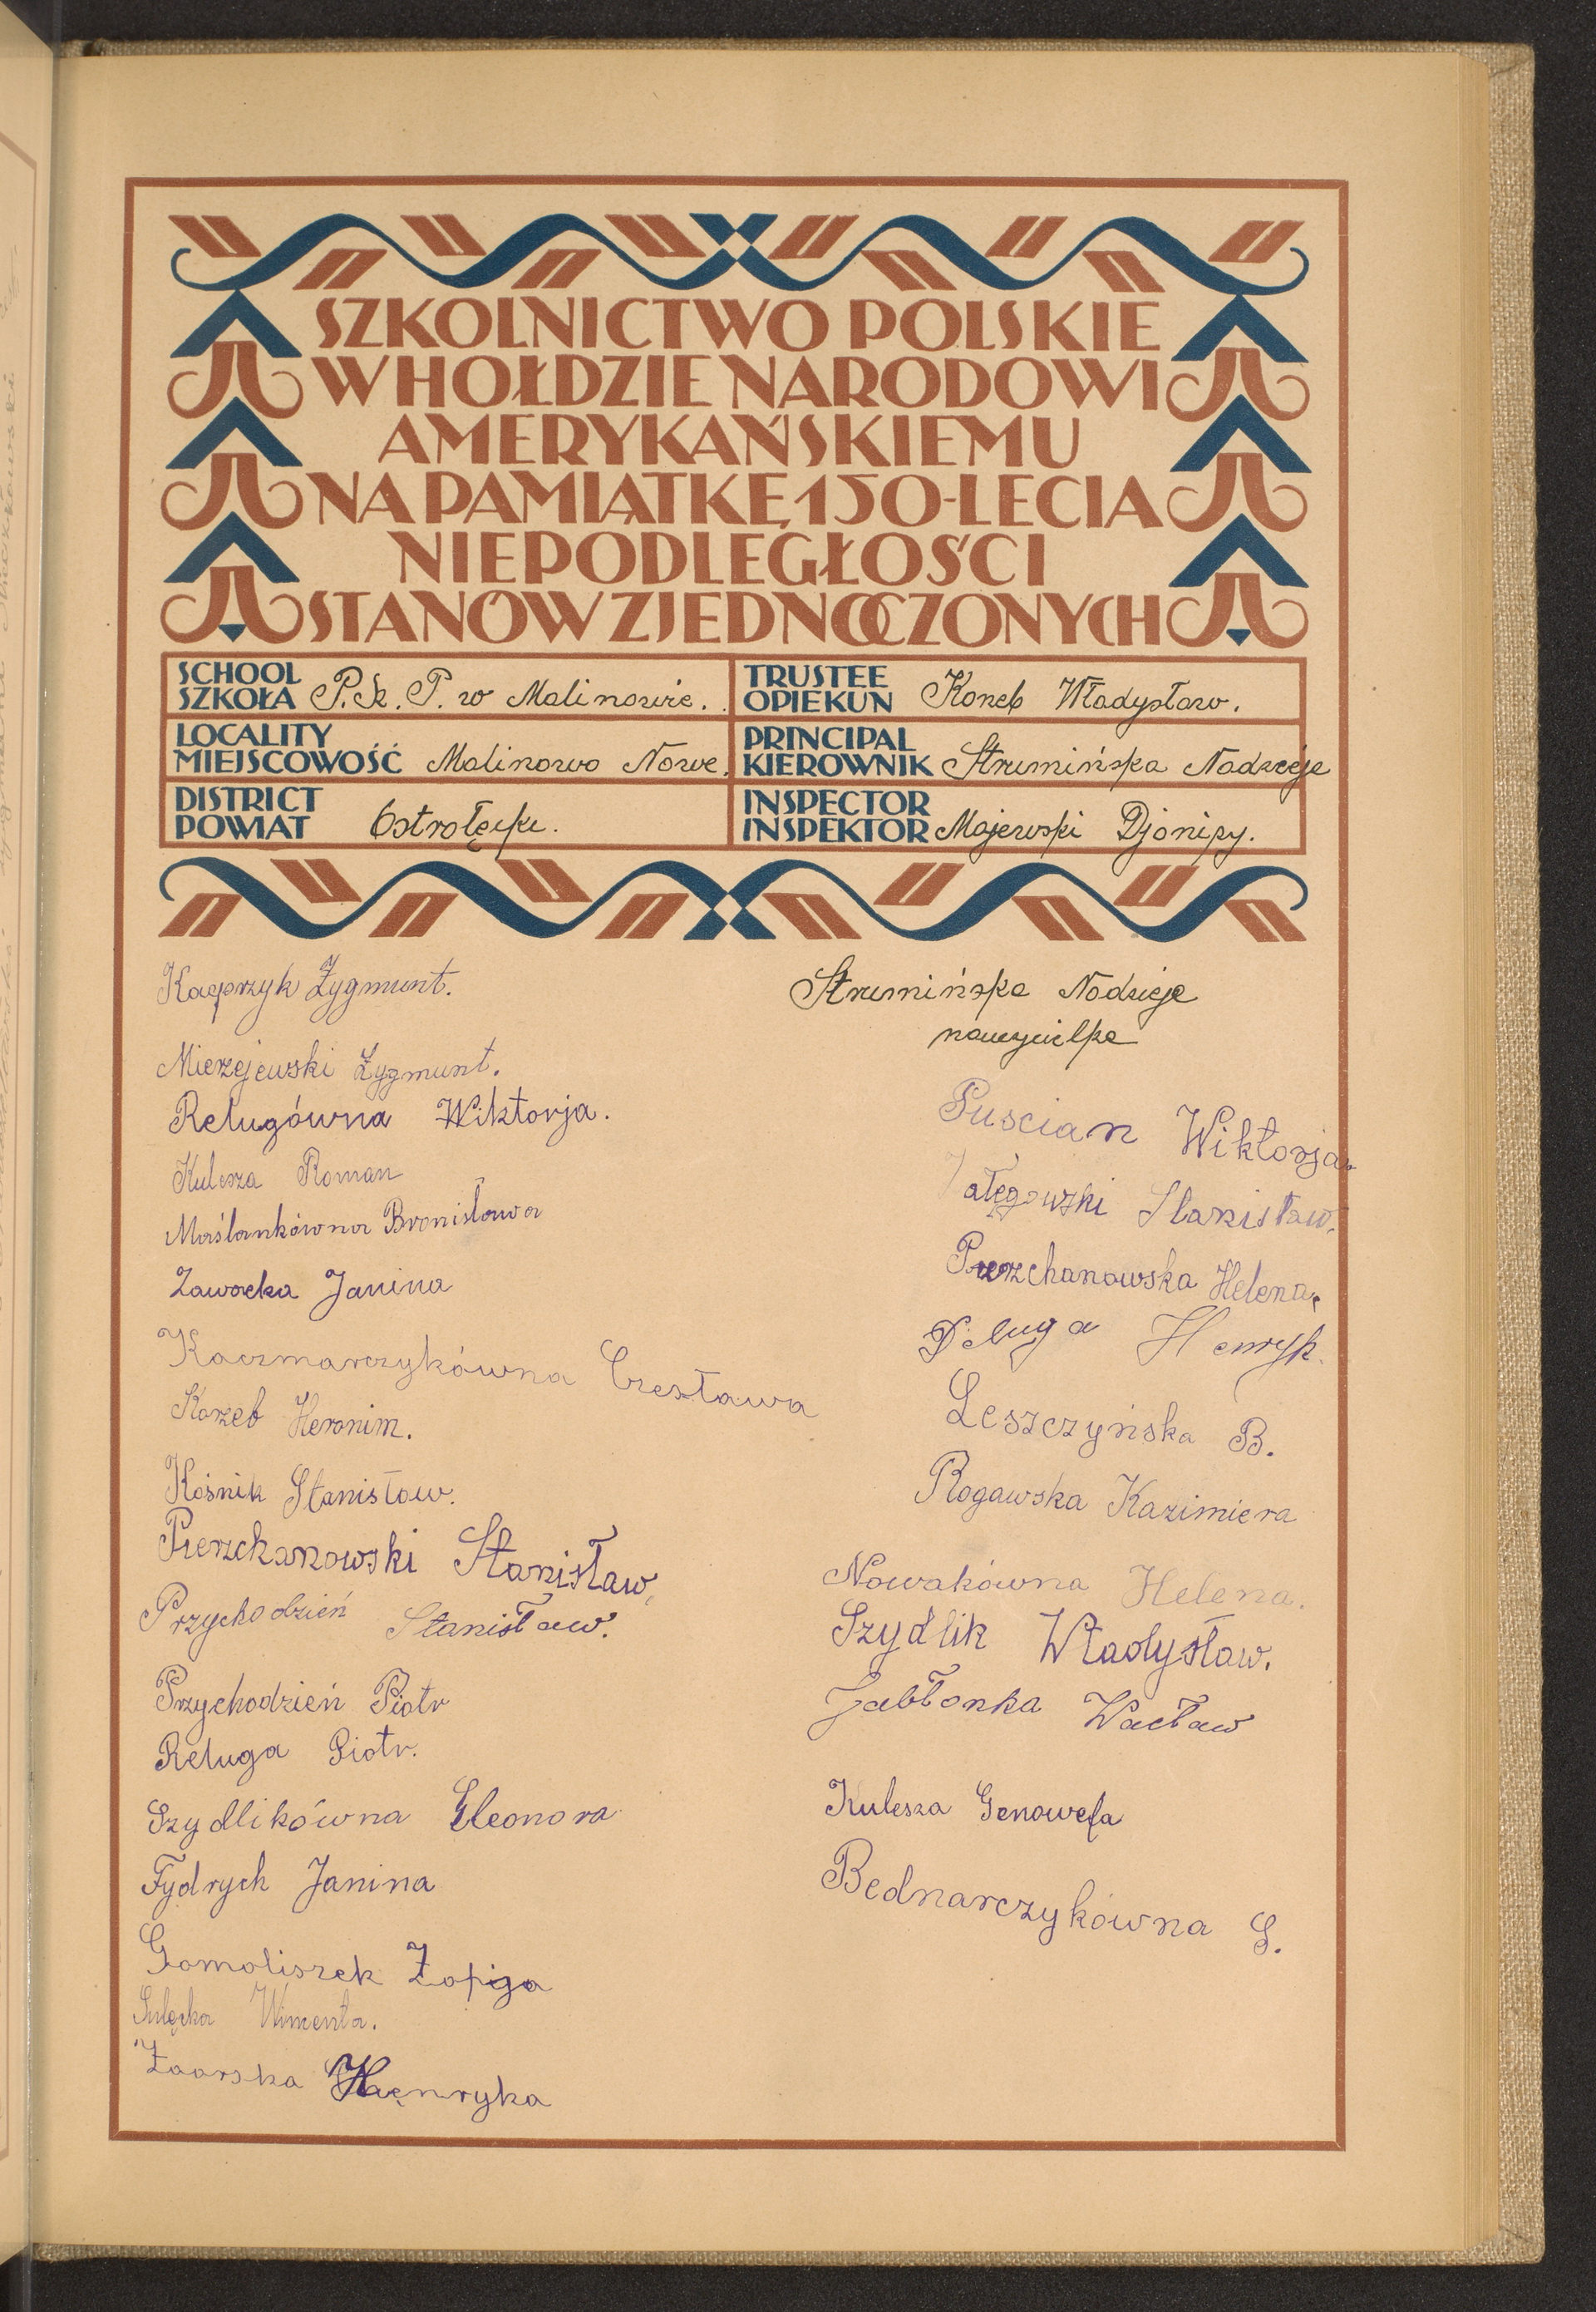 SZKOLNICTWO POLSKIE
W HOŁDZIE NARODOWI
AMERYKAŃSKIEMU
NA PAMIĄTKĘ 150-LECIA
NIEPODLEGŁOŚCI
STANÓW ZJEDNOCZONYCH
SCHOOL
SZKOŁA P.Sz.P. w Malinowie.
TRUSTEE
OPIEKUN Władysław.
LOCALITY
MIEJSCOWOŚĆ Malinowo Nowe.
PRINCIPAL
KIEROWNIK Strumińska Nadzieja
DISTRICT
POWIAT Ostrołęcki.
INSPECTOR
INSPEKTOR Majewski Djonizy.
Kacprzyk Zygmunt.
Mierzejewski Zygmunt.
Relugówna Wiktorja.
Kulesza Roman
Maślankówna Bronisława
Zawocka Janina
Kaczmarczykówna Czesława
Korzeb Heronim.
Kośnik Stanisław.
Pierzchanowski Stanisław,
Przychodzień Stanisław.
Przychodzień Piotr
Reluga Piotr.
Szydlikówna Eleonora
Fydrych Janina
Gomoliszek Zofija
Wincenta.
Zaorska Henryka
Strumińska Nadzieja
nauczycielka
Puscian Wiktorja
Stanisław.
Pierzchanowska Helena,
Henryk.
Leszczyńska B.
Rogawska Kazimiera
Nowakówna Helena.
Szydlik Władysław.
Jabłonka Wacław
Kulesza Genowefa
Bednarczykówna S.